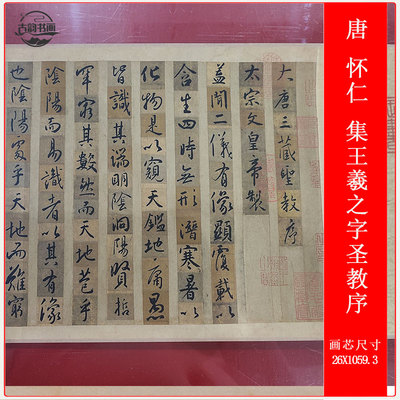 古韵书画
唐 怀仁 集王羲之字圣教序
画芯尺寸
26X1059.3
大唐三藏聖教序
太宗文皇帝製
蓋聞二儀有像顯覆載以
含生四時無形潛寒暑以
化物是以窺天鑑地庸愚
皆識其端明陰洞陽賢哲
罕窮其數然而天地苞乎
陰陽而易識者以其有像
也陰陽處乎天地而難窮